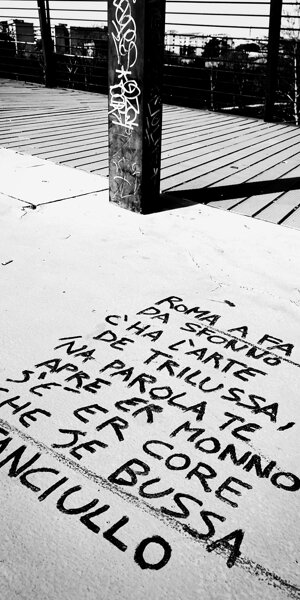 ROMA A FA
DA SFONNO
C'HA L'ARTE
DE TRILUSSA,
'NA PAROLA TE
APRE ER MONNO
S'È ER CORE
HE SE BUSSA
ANCIULLO